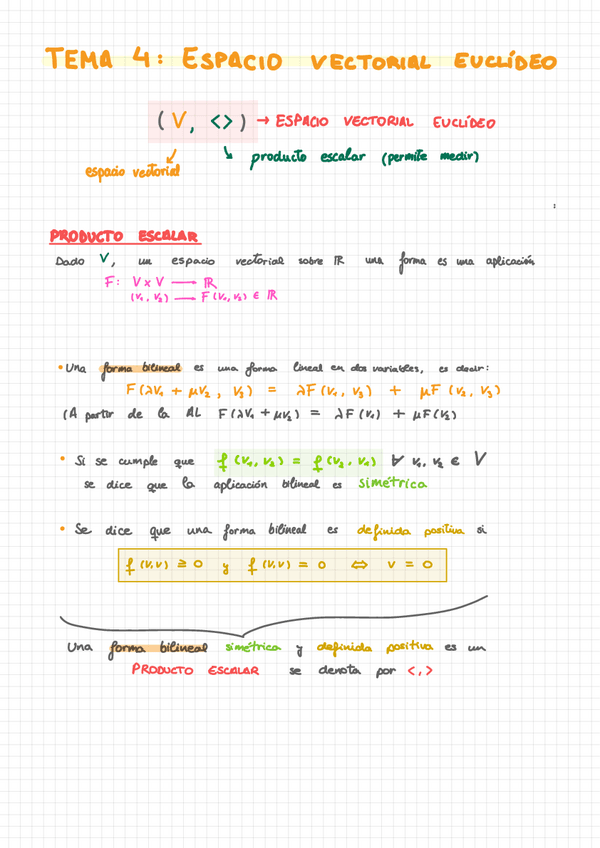 TEMA 4: ESPACIO VECTORIAL EUCLÍDEO
(V, <>) → ESPACIO VECTORIAL EUCLÍDEO
espacio vectorial
producto escalar (permite medir)
PRODUCTO ESCALAR
Dado V, un espacio vectorial sobre ℝ una forma es una aplicación
F: V x V → ℝ
(v₁, v₂) → F(v₁, v₂) ∈ ℝ
• Una forma bilineal es una forma lineal en dos variables, es decir:
F(λv₁ + μv₂, v₃) = λF(v₁, v₃) + μF(v₂, v₃)
(A partir de la AL F(λv₁ + μv₂) = λF(v₁) + μF(v₂)
• Si se cumple que f(v₁, v₂) = f(v₂, v₁) ∀ v₁, v₂ ∈ V
se dice que la aplicación bilineal es simétrica
• Se dice que una forma bilineal es definida positiva si
f(v,v) ≥ 0 y f(v,v) = 0 ⇔ v = 0
Una forma bilineal simétrica y definida positiva es un
PRODUCTO ESCALAR se denota por <,>